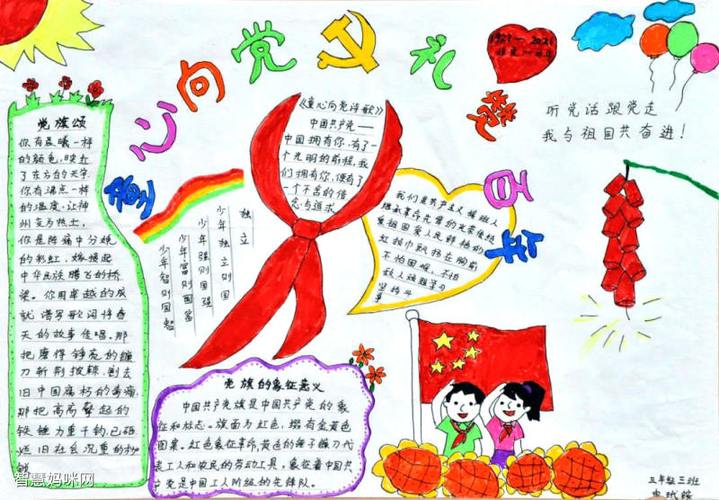 童心向党礼赞百年
1921—2021
听党话跟党走
我与祖国共奋进！
党旗颂
你有晨曦一样
的颜色，映红
了东方的天宇
你有沸点一样
的温度，让神
州变为热土。
你是阵痛中分娩
的彩虹，嫁接起
中华民族腾飞的桥
梁。你用卓越的成
就谱写歌词伴春
天的故事传唱。那
把磨得铮亮的镰
刀斩荆披棘，割去
旧中国腐朽的
那把高高举起的
铁锤力重千钧，已砸
《童心向党诗歌》
中国共产党——
中国拥有你，有了一
个光明的前程，我
们拥有你，便有了
一个不舍的信
念与追求
独立
少年独立则国
少年强则国强
少年富则国富
少年智则国智
我们是共产主义接班人
继承革命先辈的光荣传统
爱祖国爱人民鲜艳的
红领巾飘扬在胸前
不怕困难、不怕
敌人顽强学习
坚持斗
争
党旗的象征意义
中国共产党旗是中国共产党的象
征和标志。旗面为红色，缀有金黄色
图案。红色象征革命，黄色的锤子镰刀代
表工人和农民的劳动工具，象征着中国共
产党是中国工人阶级的先锋队。
五年级三班
智慧妈咪网